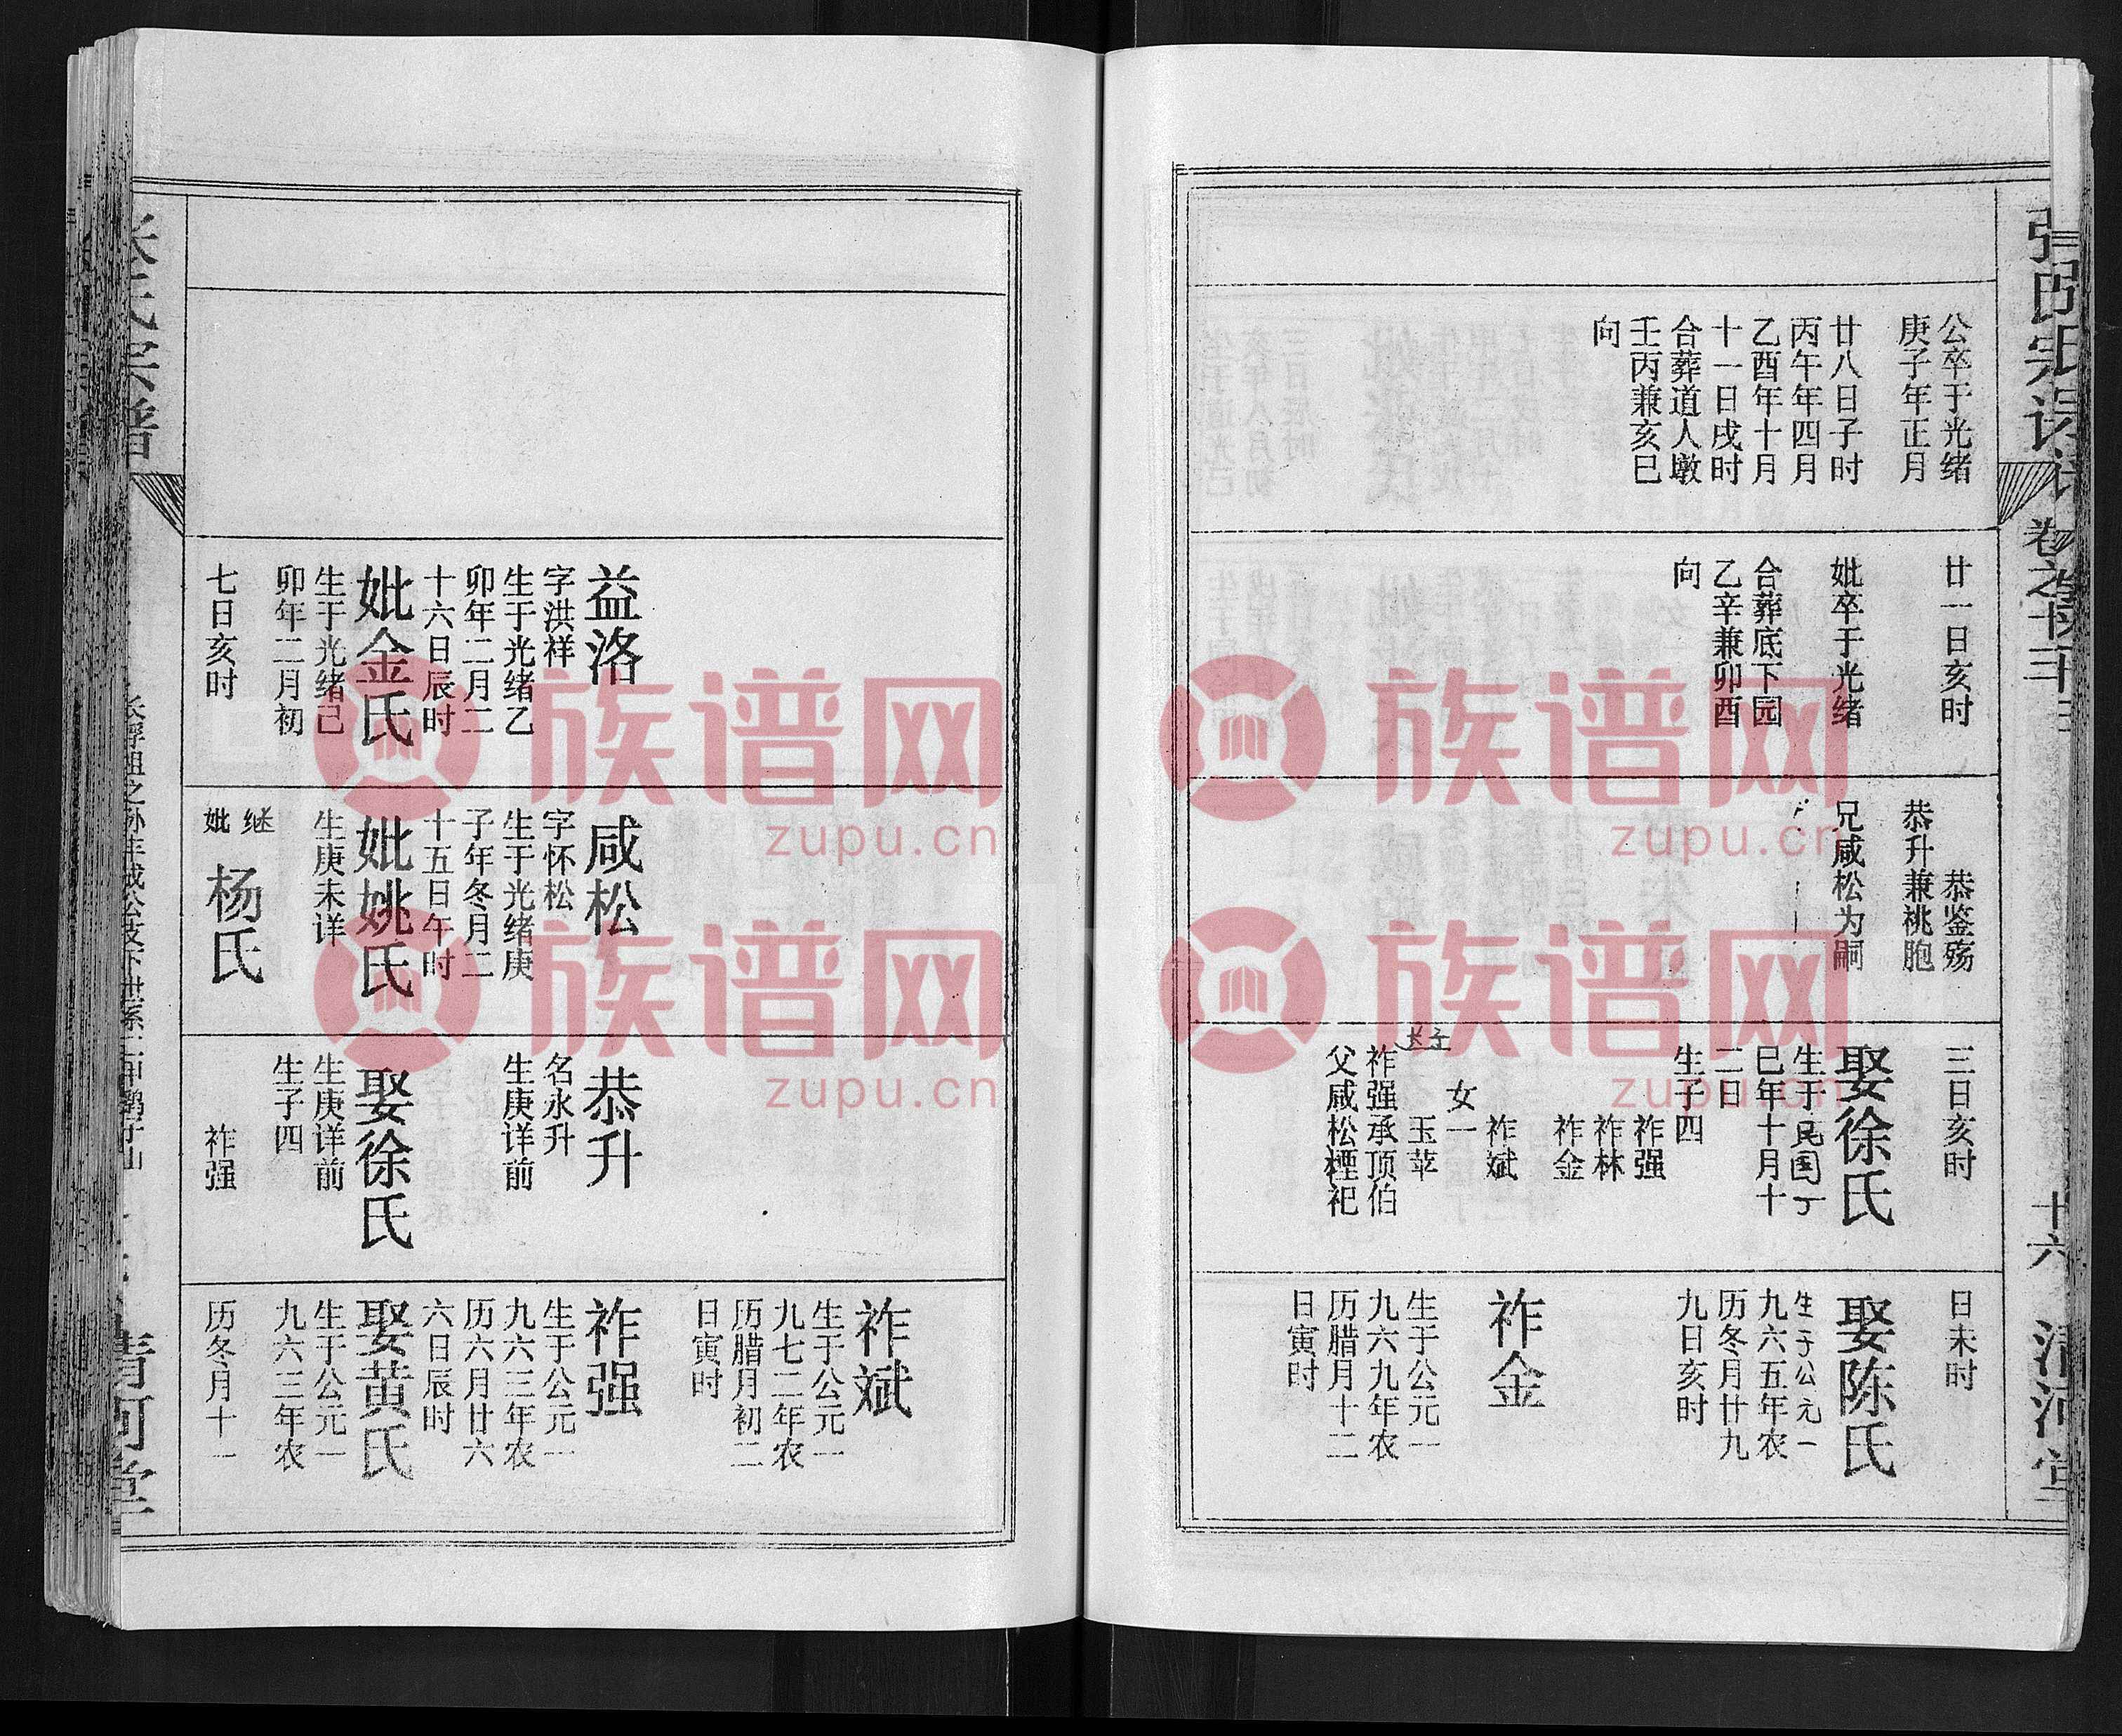 公卒于光绪
庚子年正月
廿八日子时
丙午年四月
乙酉年十月
十一日戌时
合葬道人墩
壬丙兼亥巳
向
廿一日亥时
妣卒于光绪
合葬底下园
乙辛兼卯酉
向
恭鉴殇
恭升兼祧胞
兄咸松为嗣
三日亥时
娶徐氏
生于民国丁
巳年十月十
二日
生子四
祚强
祚林
祚金
祚斌
女一
玉苹
祚强承顶伯
父咸松禋祀
日未时
娶陈氏
生于公元一
九六五年农
历冬月廿九
九日亥时
祚金
生于公元一
九六九年农
历腊月十二
日寅时
十六
清河堂
益洛
字洪祥
生于光绪乙
卯年二月二
十六日辰时
妣金氏
生于光绪己
卯年二月初
七日亥时
咸松
字怀松
生于光绪庚
子年冬月二
十五日午时
妣姚氏
生庚未详
继妣杨氏
恭升
名永升
生庚详前
娶徐氏
生庚详前
生子四
祚强
祚斌
生于公元一
九七二年农
历腊月初二
日寅时
祚强
生于公元一
九六三年农
历六月廿六
六日辰时
娶黄氏
生于公元一
九六三年农
历冬月十一
清河堂
族谱网
zupu.cn
族谱网
zupu.cn
族谱网
zupu.cn
族谱网
zupu.cn